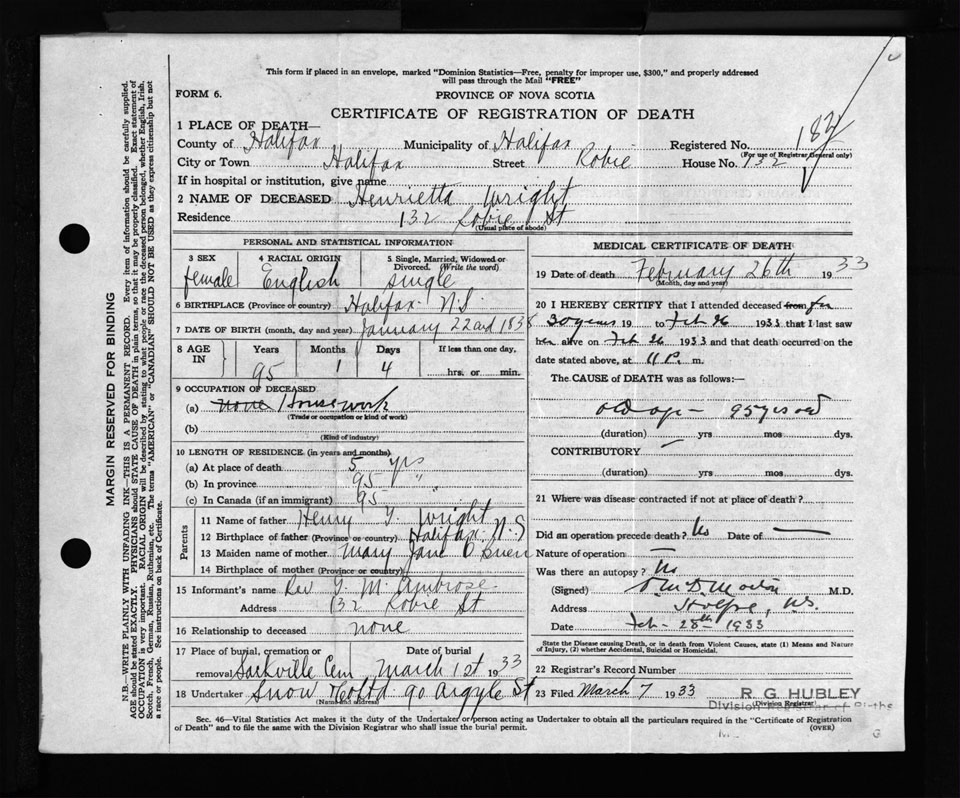 This form if placed in an envelope, marked "Dominion Statistics—Free, penalty for improper use, $300," and properly addressed
will pass through the Mail "FREE"
FORM 6.
PROVINCE OF NOVA SCOTIA
CERTIFICATE OF REGISTRATION OF DEATH
1 PLACE OF DEATH—
County of Halifax Municipality of Halifax Registered No.
(For use of Registrar General only)
City or Town Halifax Street Robie House No. 132
If in hospital or institution, give name
2 NAME OF DECEASED Henrietta Wright
Residence 132 Robie St
(Usual place of abode)
PERSONAL AND STATISTICAL INFORMATION
3 SEX 4 RACIAL ORIGIN 5 Single, Married, Widowed or
Divorced. (Write the word)
female English single
6 BIRTHPLACE (Province or country) Halifax N.S.
7 DATE OF BIRTH (month, day and year) January 22nd 1838
8 AGE IN Years Months Days If less than one day,
95 1 4 hrs. or min.
9 OCCUPATION OF DECEASED
(a) none Housework
(Trade or occupation or kind of work)
(b)
(Kind of industry)
10 LENGTH OF RESIDENCE (in years and months)
(a) At place of death 5 yrs
(b) In province 95 "
(c) In Canada (if an immigrant) 95 "
Parents
11 Name of father Henry Y. Wright
12 Birthplace of father (Province or country) Halifax N.S
13 Maiden name of mother Mary Jane O'Brien
14 Birthplace of mother (Province or country)
15 Informant's name Rev Y. M. Ambrose
Address 132 Robie St
16 Relationship to deceased none
17 Place of burial, cremation or Date of burial
removal Sackville Cem March 1st 1933
18 Undertaker Snow & Co Ltd 90 Argyle St
(Name and address)
MEDICAL CERTIFICATE OF DEATH
19 Date of death February 26th 1933
(Month, day and year)
20 I HEREBY CERTIFY that I attended deceased from for
30 years 19 to Feb 26 1933 that I last saw
her alive on Feb 26 1933 and that death occurred on the
date stated above, at 11 P. m.
The CAUSE of DEATH was as follows:—
old age - 95 yrs old
(duration) yrs mos dys.
CONTRIBUTORY —
(duration) yrs mos dys.
21 Where was disease contracted if not at place of death?
Did an operation precede death? No Date of —
Nature of operation —
Was there an autopsy? No
(Signed) M.D.
Address N.S.
Date Feb - 28th 1933
State the Disease causing Death, or in death from Violent Causes, state (1) Means and Nature
of Injury, (2) whether Accidental, Suicidal or Homicidal.
22 Registrar's Record Number
23 Filed March 7 1933
R. G. HUBLEY
Division Registrar
Division Registrar of Births
Sec. 46—Vital Statistics Act makes it the duty of the Undertaker or person acting as Undertaker to obtain all the particulars required in the "Certificate of Registration
of Death" and to file the same with the Division Registrar who shall issue the burial permit.
(OVER)
MARGIN RESERVED FOR BINDING
N.B.—WRITE PLAINLY WITH UNFADING INK—THIS IS A PERMANENT RECORD. Every item of information should be carefully supplied.
AGE should be stated EXACTLY. PHYSICIANS should STATE CAUSE OF DEATH in plain terms, so that it may be properly classified. Exact statement of
OCCUPATION is very important. RACIAL ORIGIN will be described by stating to what people or race the deceased person belonged, whether English, Irish,
Scotch, French, German, Russian, Ruthenian, etc. The terms "AMERICAN" or "CANADIAN" SHOULD NOT BE USED as they express citizenship but not
a race or people. See instructions on back of Certificate.